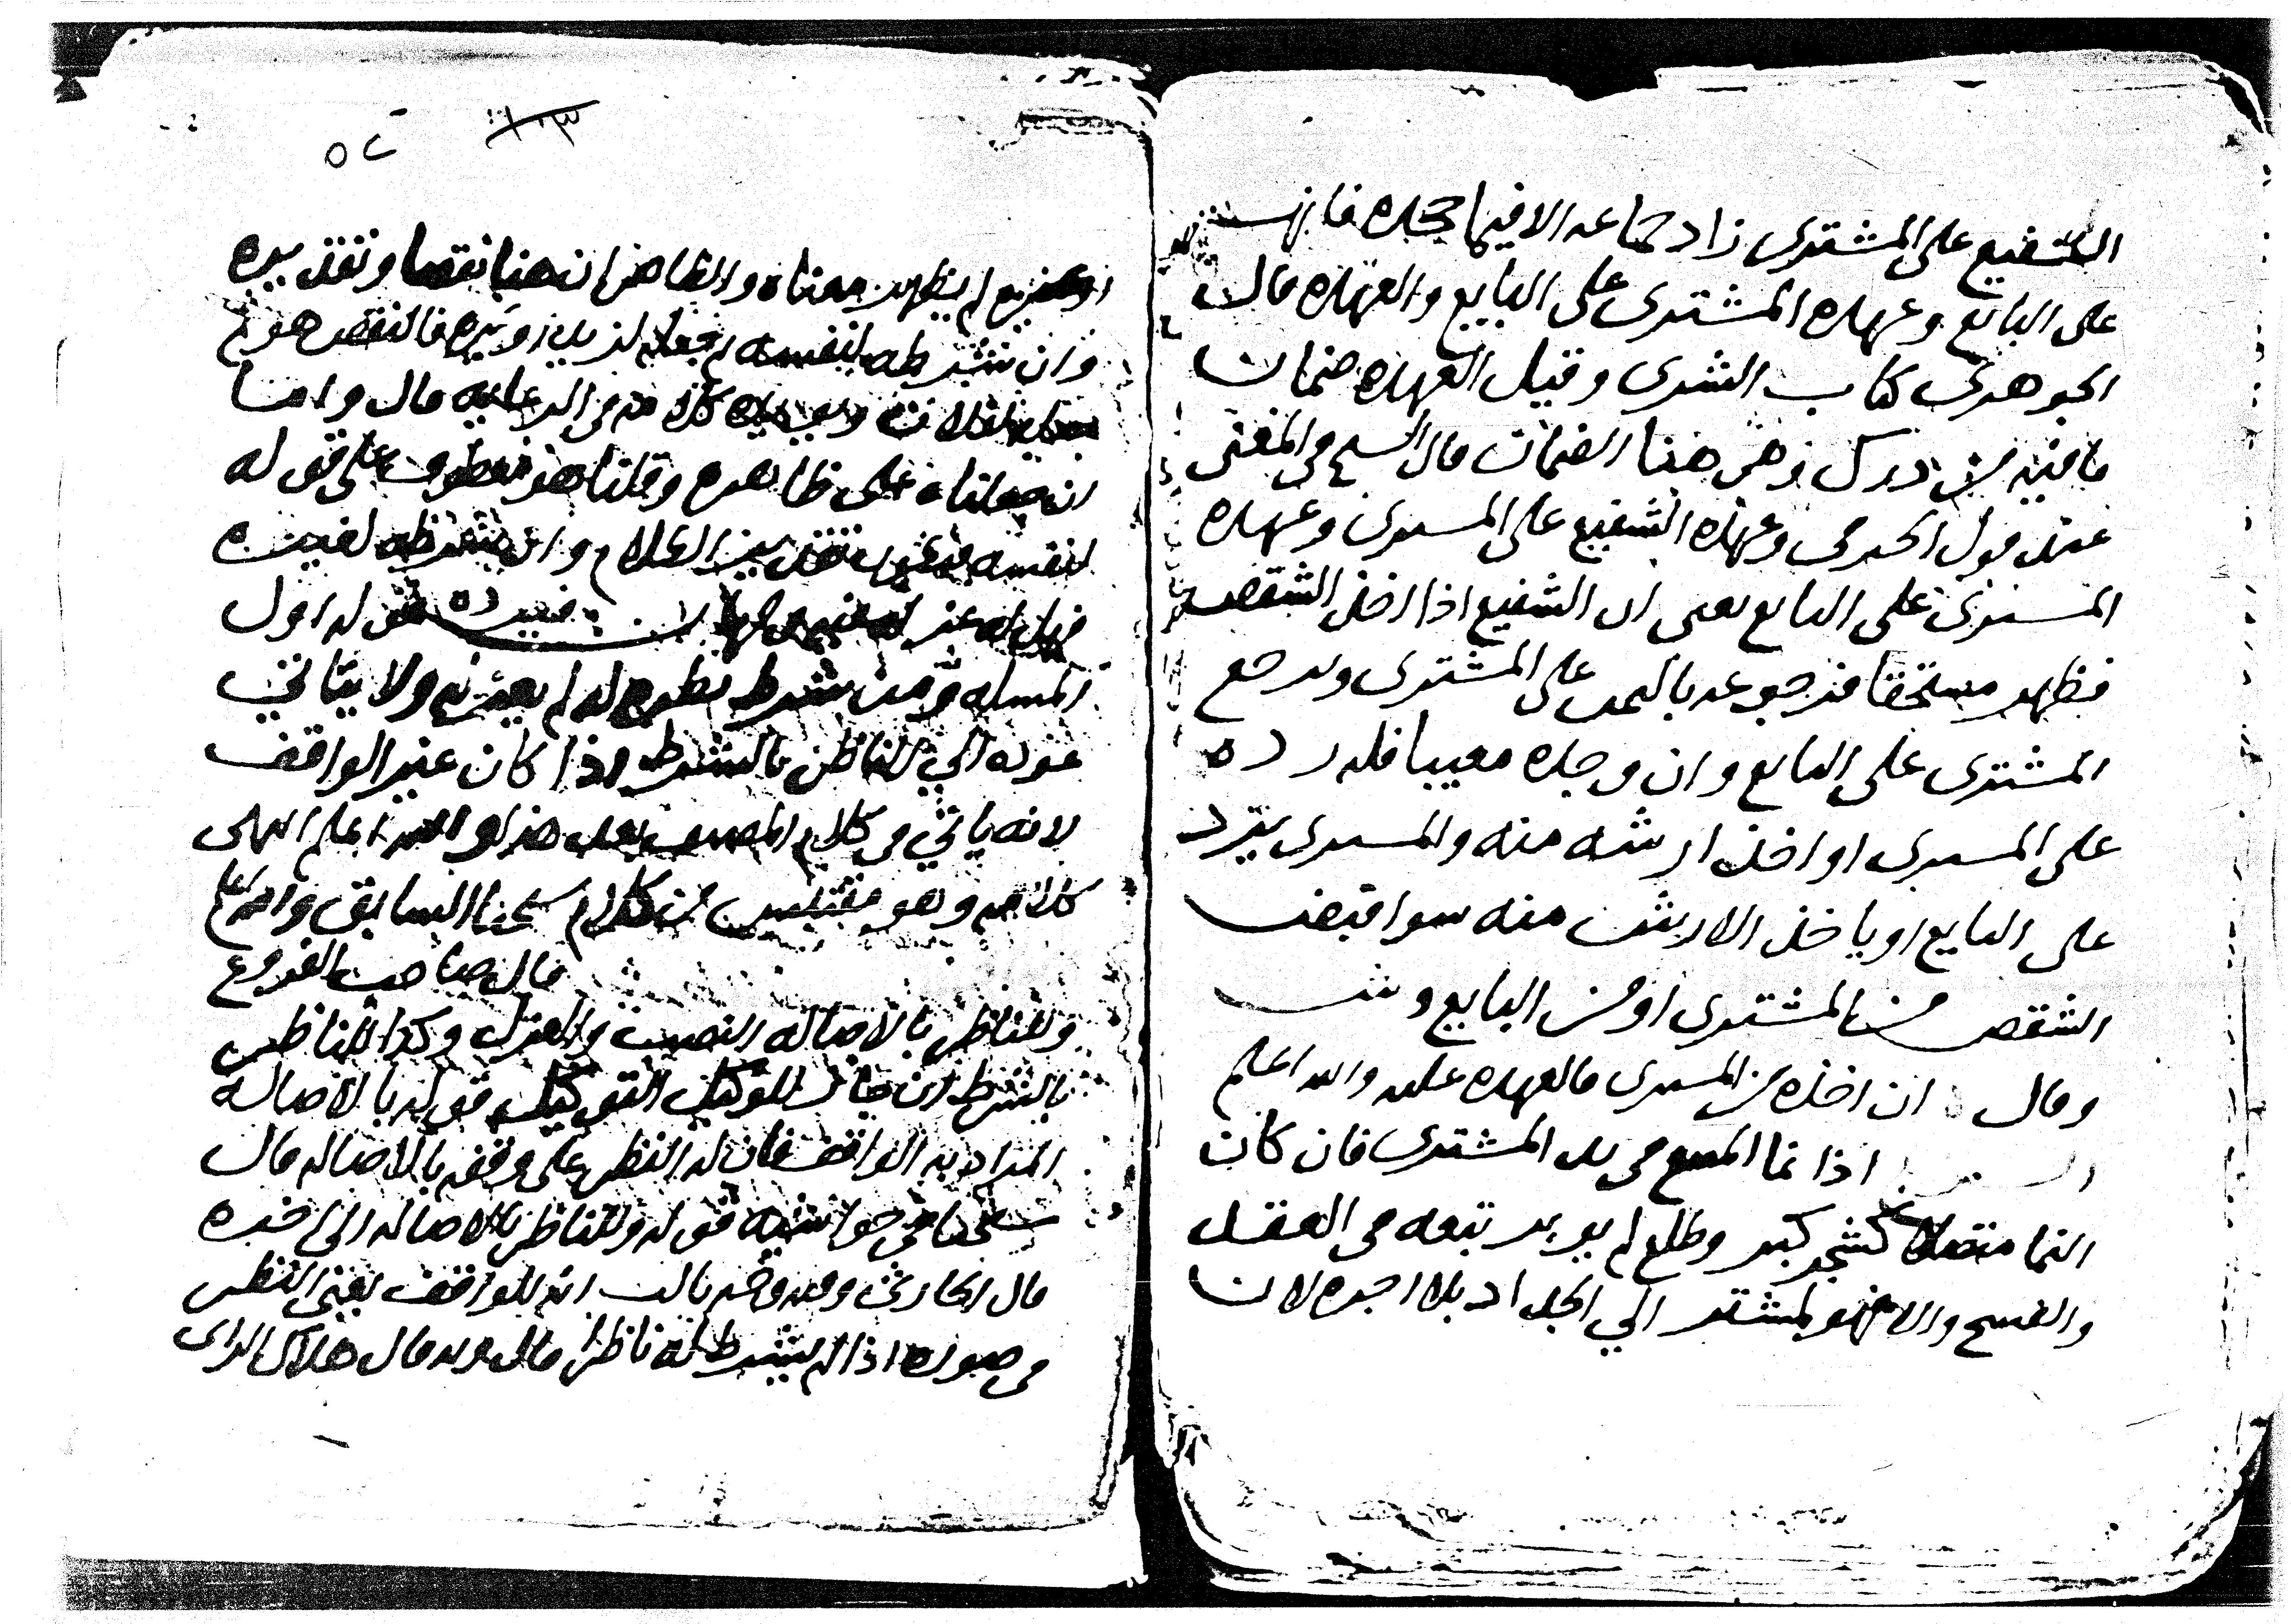 الشفيع على المشتري زاد جماعه الا فيما جحده فانها
على البايع وعهده المشتري على البايع والعهده قال
الجوهري كتاب الشري وقيل العهده ضمان
ما فيه من درك وهي هنا الضمان قال الشيخ في المغني
عند قول الخرقي وعهده الشفيع على المشتري وعهده
المشتري على البايع يعني ان الشفيع اذا اخذ الشقص
فظهر مستحقا فرجوعه بالثمن على المشتري ويرجع
المشتري على البايع وان وجده معيبا فله رده
على المشتري او اخذ ارشه منه والمشتري يرد
على البايع او ياخذ الارش منه سوا قبض
الشقص من المشتري او من البايع
وقال ان اخذه من المشتري فالعهده عليه والله اعلم
اذا نما المبيع في يد المشتري فان كان
النما متصلا كشجر كبر وطلع لم يوبر تبعه في العقد
والفسخ والا فهو لمشتر الي الجداد بلا اجره لان
٥٢
لم يظهر معناه والظاهر ان هنا نقصا وتقديره
وان شرطه لنفسه ثم جعله لزيد او غيره فالنقص هو ثم
جعله كلامه في الرعايه قال واما
ان جعلناه على ظاهره وقلنا هو معطوف على قوله
لنفسه فيكون تقدير الكلام وان شرطه لغيره
قوله اول
المسله ومن شرط نظره له لم يعزله ولا يتاتي
عزله الي الناظر بالشرط اذا كان غير الواقف
لانه ياتي في كلام المصنف بعد هذا والله اعلم انتهى
كلامه وهو مقتبس من كلام شيخنا السابق والله اعلم
قال صاحب الفروع
وللناظر بالاصاله النصب والعزل وكذا الناظر
بالشرط ان جاز للوكيل التوكيل قوله بالاصاله
المراد به الواقف فان له النظر على وقفه بالاصاله قال
شيخنا في حواشيه قوله وللناظر بالاصاله الى اخره
قال الحارثي وفيه وجه ثالث انه للواقف يعني النظر
في صوره اذا لم يشرط له ناظرا قال وبه قال هلال الراي